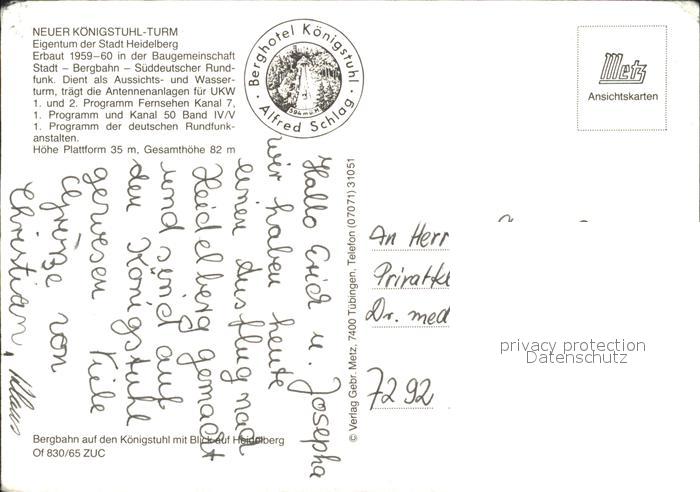 NEUER KÖNIGSTUHL-TURM
Eigentum der Stadt Heidelberg
Erbaut 1959–60 in der Baugemeinschaft
Stadt – Bergbahn – Süddeutscher Rund-
funk. Dient als Aussichts- und Wasser-
turm, trägt die Antennenanlagen für UKW
1. und 2. Programm Fernsehen Kanal 7,
1. Programm und Kanal 50 Band IV/V
1. Programm der deutschen Rundfunk-
anstalten.
Höhe Plattform 35 m, Gesamthöhe 82 m
· Berghotel Königstuhl ·
Alfred Schlag
Metz
Ansichtskarten
Hallo Erich u. Josepha
wir haben heute
einen Ausflug nach
Heidelberg gemacht
und sind auf
den Königstuhl
gewesen Viele
Grüße von
Christian, Klaus
© Verlag Gebr. Metz, 7400 Tübingen, Telefon (07071) 31051
An Herr
Privatkl
Dr. med
7292
privacy protection
Datenschutz
Bergbahn auf den Königstuhl mit Blick auf Heidelberg
Of 830/65 ZUC